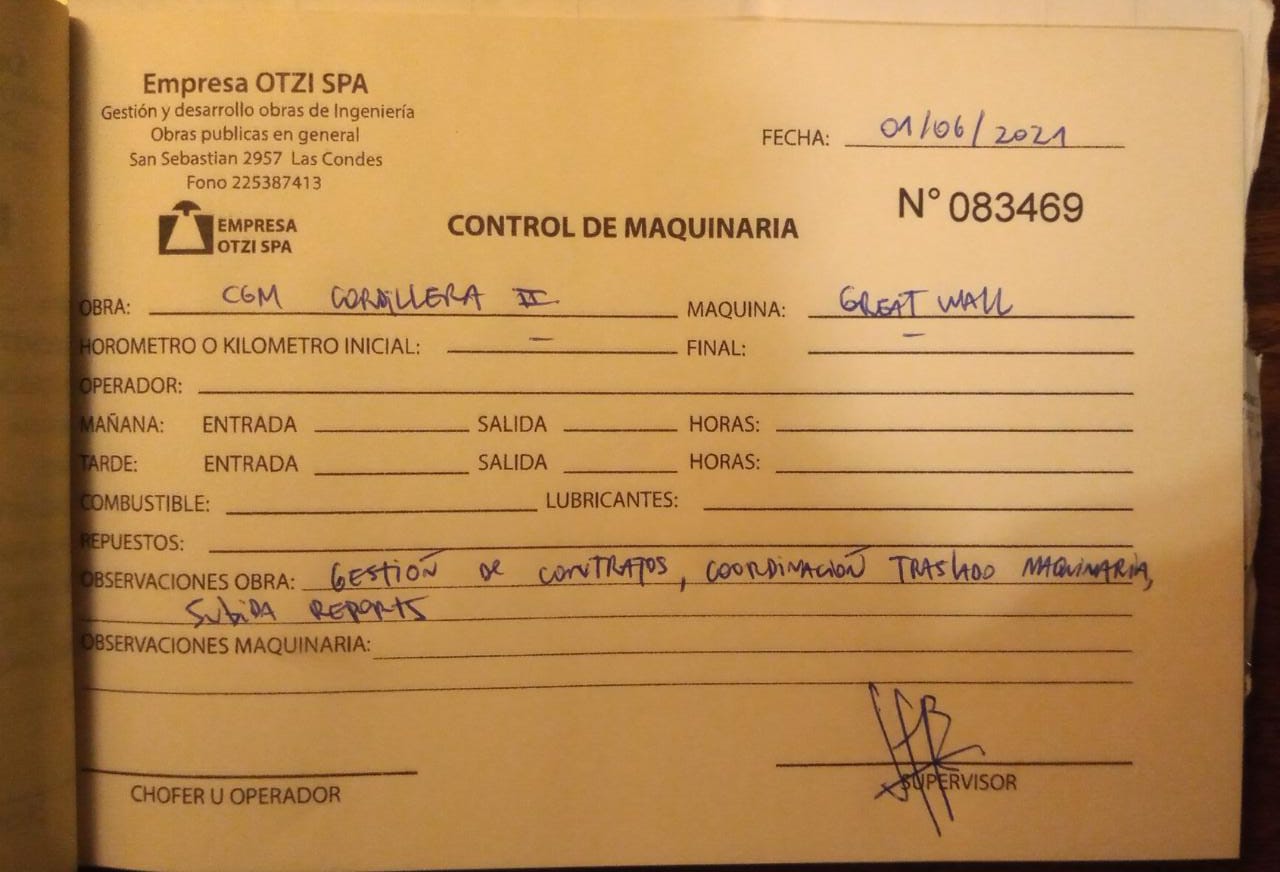 Empresa OTZI SPA
Gestión y desarrollo obras de Ingeniería
Obras publicas en general
San Sebastian 2957 Las Condes
Fono 225387413
EMPRESA
OTZI SPA
FECHA: 01/06/2021
N° 083469
CONTROL DE MAQUINARIA
OBRA: CGM CORDILLERA II MAQUINA: GREAT WALL
HOROMETRO O KILOMETRO INICIAL: - FINAL: -
OPERADOR:
MAÑANA: ENTRADA SALIDA HORAS:
TARDE: ENTRADA SALIDA HORAS:
COMBUSTIBLE: LUBRICANTES:
REPUESTOS:
OBSERVACIONES OBRA: GESTIÓN DE CONTRATOS, COORDINACIÓN TRASLADO MAQUINARIA,
SUBIDA REPORTS
OBSERVACIONES MAQUINARIA:
CHOFER U OPERADOR
SUPERVISOR